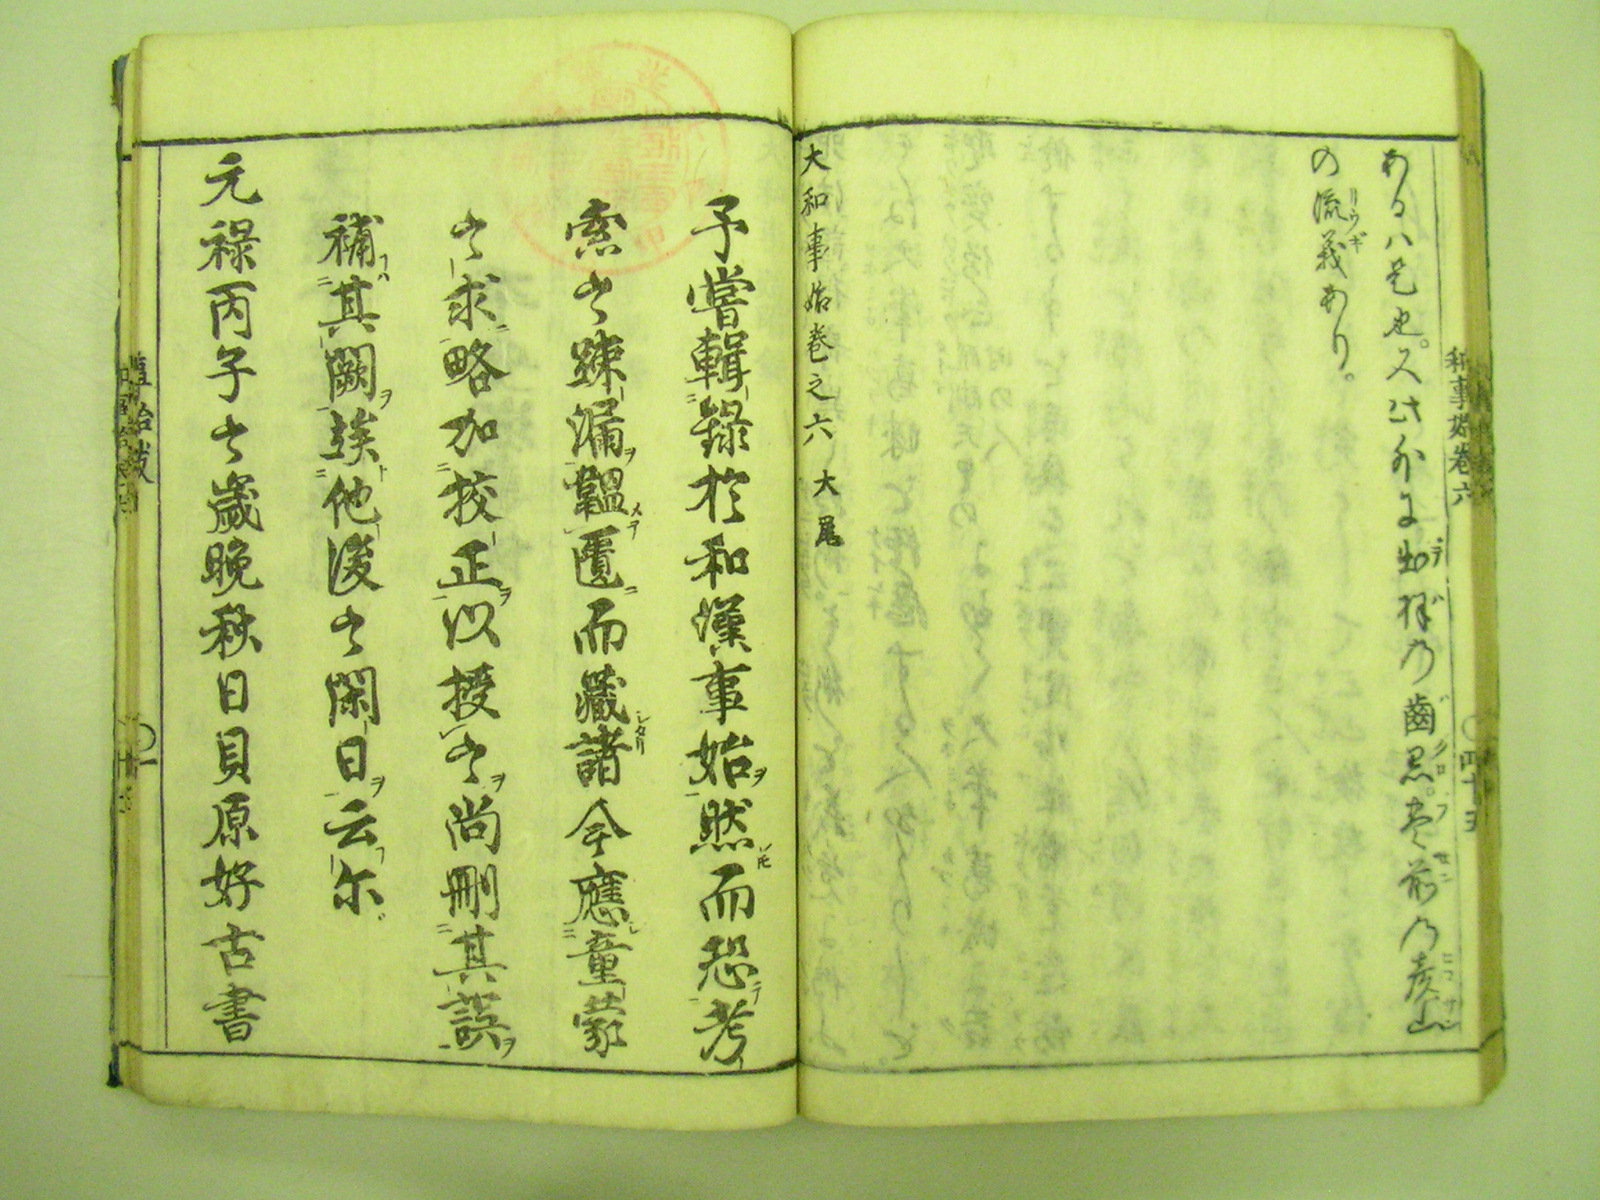 あるハ是也。又此外に出羽の齒黒。豊前の彦山
の流義あり。
大和事始卷之六 大尾
和事始卷六
四十五
予嘗輯錄於和漢事始然而恐考
索之疎漏韞匱而藏諸今應童蒙
之求略加校正以授之尚刪其誤
補其闕竢他後之閑日云尓
元祿丙子之歲晚秋日貝原好古書